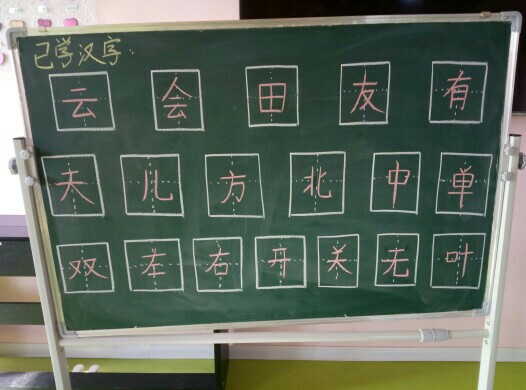 已学汉字:
云 会 田 友 有
夫 儿 方 北 中 单
双 左 右 开 关 无 叶